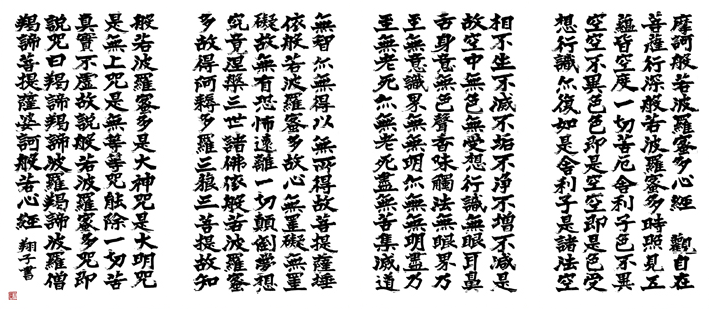 摩訶般若波羅蜜多心經 觀自在
菩薩行深般若波羅蜜多時照見五
蘊皆空度一切苦厄舎利子色不異
空空不異色色即是空空即是色受
想行識亦復如是舎利子是諸法空
相不生不滅不垢不淨不増不減是
故空中無色無受想行識無眼耳鼻
舌身意無色聲香味觸法無眼界乃
至無意識界無無明亦無無明盡乃
至無老死亦無老死盡無苦集滅道
無智亦無得以無所得故菩提薩埵
依般若波羅蜜多故心無罣礙無罣
礙故無有恐怖遠離一切顛倒夢想
究竟涅槃三世諸佛依般若波羅蜜
多故得阿耨多羅三藐三菩提故知
般若波羅蜜多是大神咒是大明咒
是無上咒是無等等咒能除一切苦
真實不虚故説般若波羅蜜多咒即
説咒曰羯諦羯諦波羅羯諦波羅僧
羯諦菩提薩婆訶般若心經 翔子書